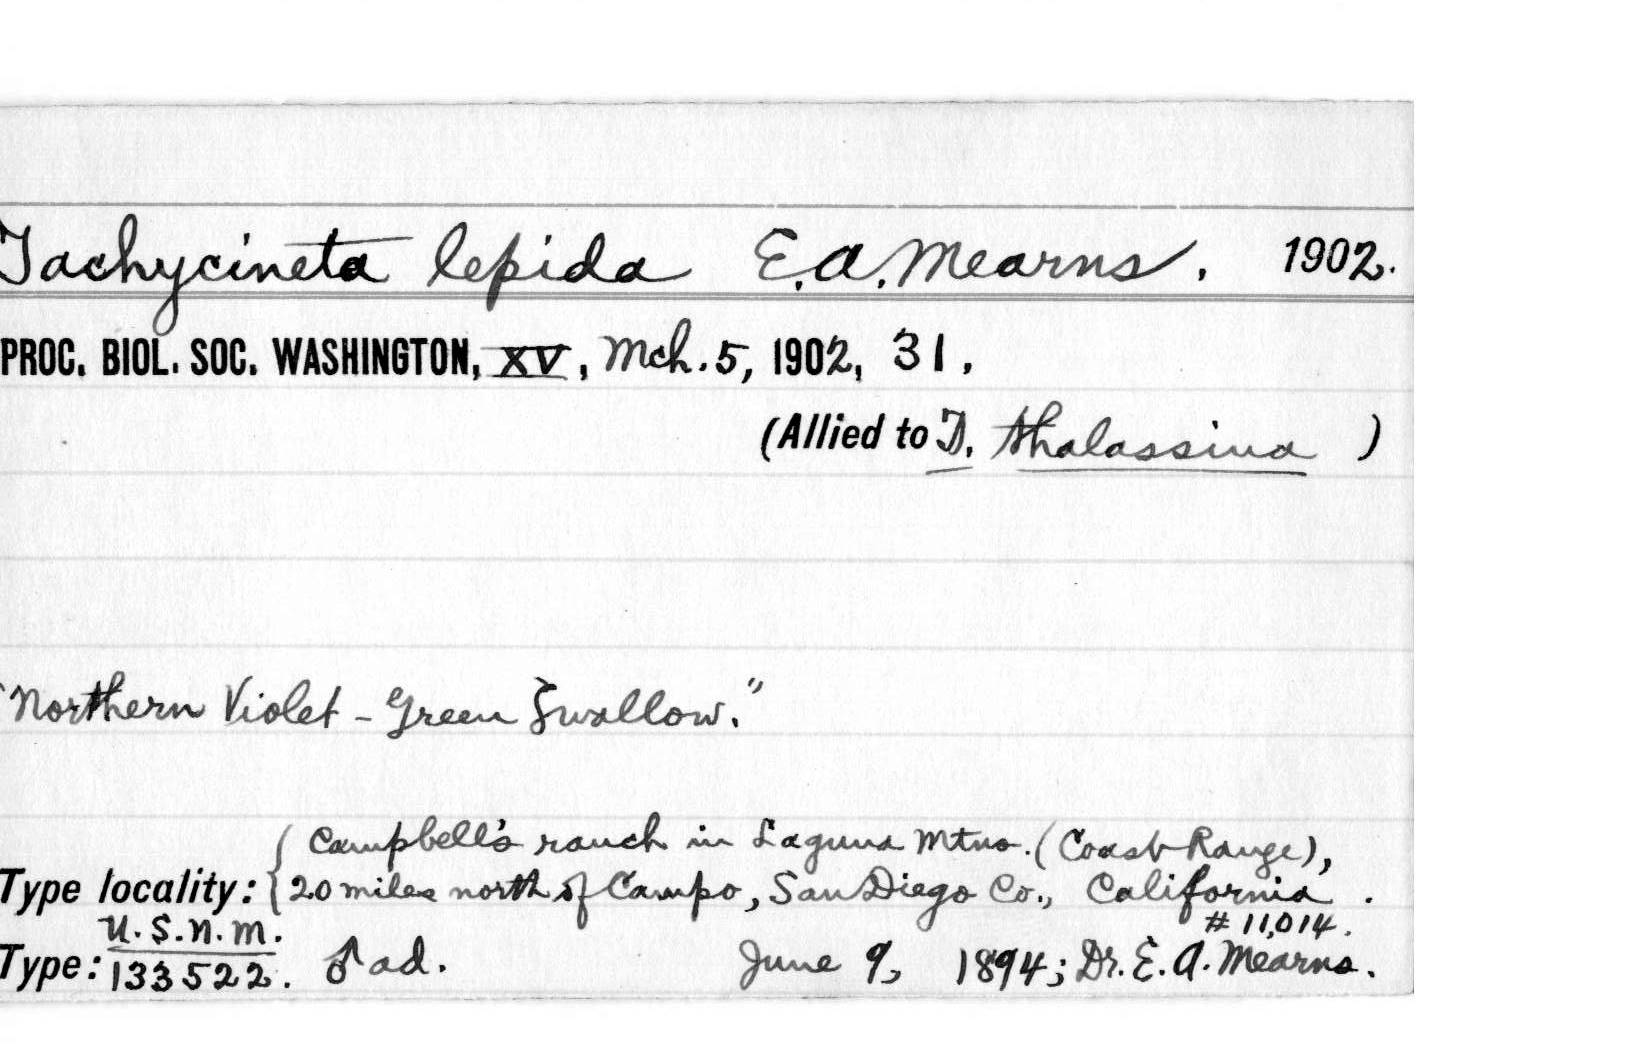 Tachycineta lepida E.A. Mearns. 1902.
PROC. BIOL. SOC. WASHINGTON, XV, Mch. 5, 1902, 31.
(Allied to T. thalassina )
"Northern Violet-Green Swallow."
Campbell's ranch in Laguna Mtns. (Coast Range),
Type locality: { 20 miles north of Campo, San Diego Co., California.
U.S.N.M. # 11,014.
Type: 133522. ♂ ad. June 9, 1894; Dr. E. A. Mearns.